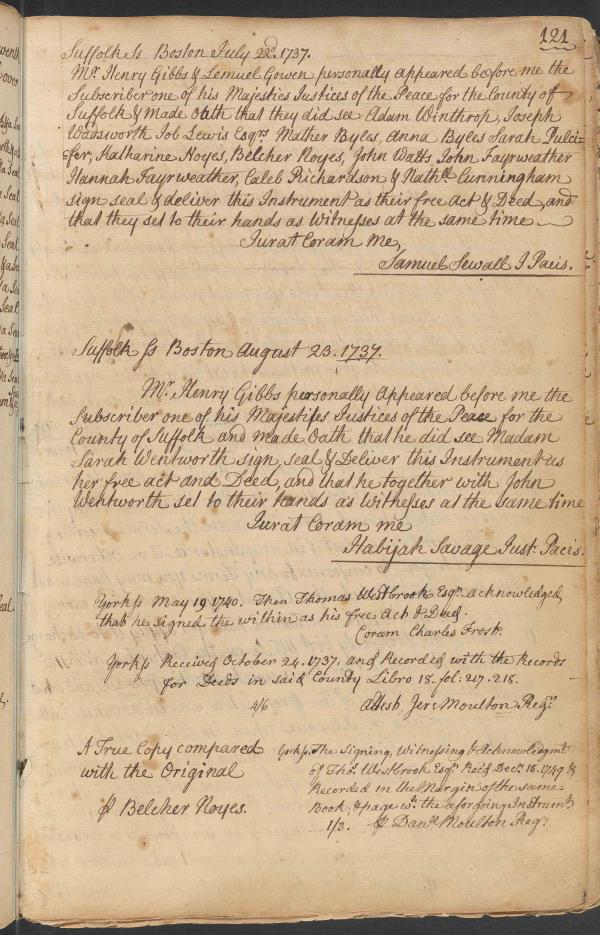 121
Suffolk ss Boston July 22d. 1737.
Mr. Henry Gibbs & Lemuel Gowen personally appeared before me the
Subscriber one of his Majesties Justices of the Peace for the County of
Suffolk & Made Oath that they did see Adam Winthrop, Joseph
Wadsworth Job Lewis Esqrs. Mather Byles, Anna Byles Sarah Pulci=
=fer, Katharine Noyes, Belcher Noyes, John Watts John Fayrweather
Hannah Fayrweather, Caleb Richardson & Nathll Cunningham
sign seal & deliver this Instrument as their free act & Deed, and
that they set to their hands as Witnesses at the same time
Jurat Coram me,
Samuel Sewall J Pacis.
Suffolk ss Boston August 23. 1737.
Mr. Henry Gibbs personally appeared before me the
Subscriber one of his Majesties Justices of the Peace for the
County of Suffolk and Made Oath that he did see Madam
Sarah Wentworth sign, seal & Deliver this Instrument as
her free act and Deed, and that he together with John
Wentworth set to their hands as Witnesses at the same time
Jurat Coram me
Habijah Savage Just: Pacis.
York ss May 19 1740. Then Thomas Westbrook Esqr. acknowledged
that he signed the within as his free Act & Deed.
Coram Charles Frost.
York ss Received October 24. 1737, and Recorded with the Records
for Deeds in said County Libro 18. fol: 217. 218.
2/6 Attest, Jer: Moulton Regr.
A True Copy compared
with the Original
⅌ Belcher Noyes.
York ss. The Signing, Witnessing & Acknowledgmt.
of Thos. Westbrook Esqr. Recd Decr. 18. 1749 &
Recorded in the Margin of the same
Book, & page wth. the aforegoing Instrumt.
1/3. ⅌ Danl. Moulton Regr.